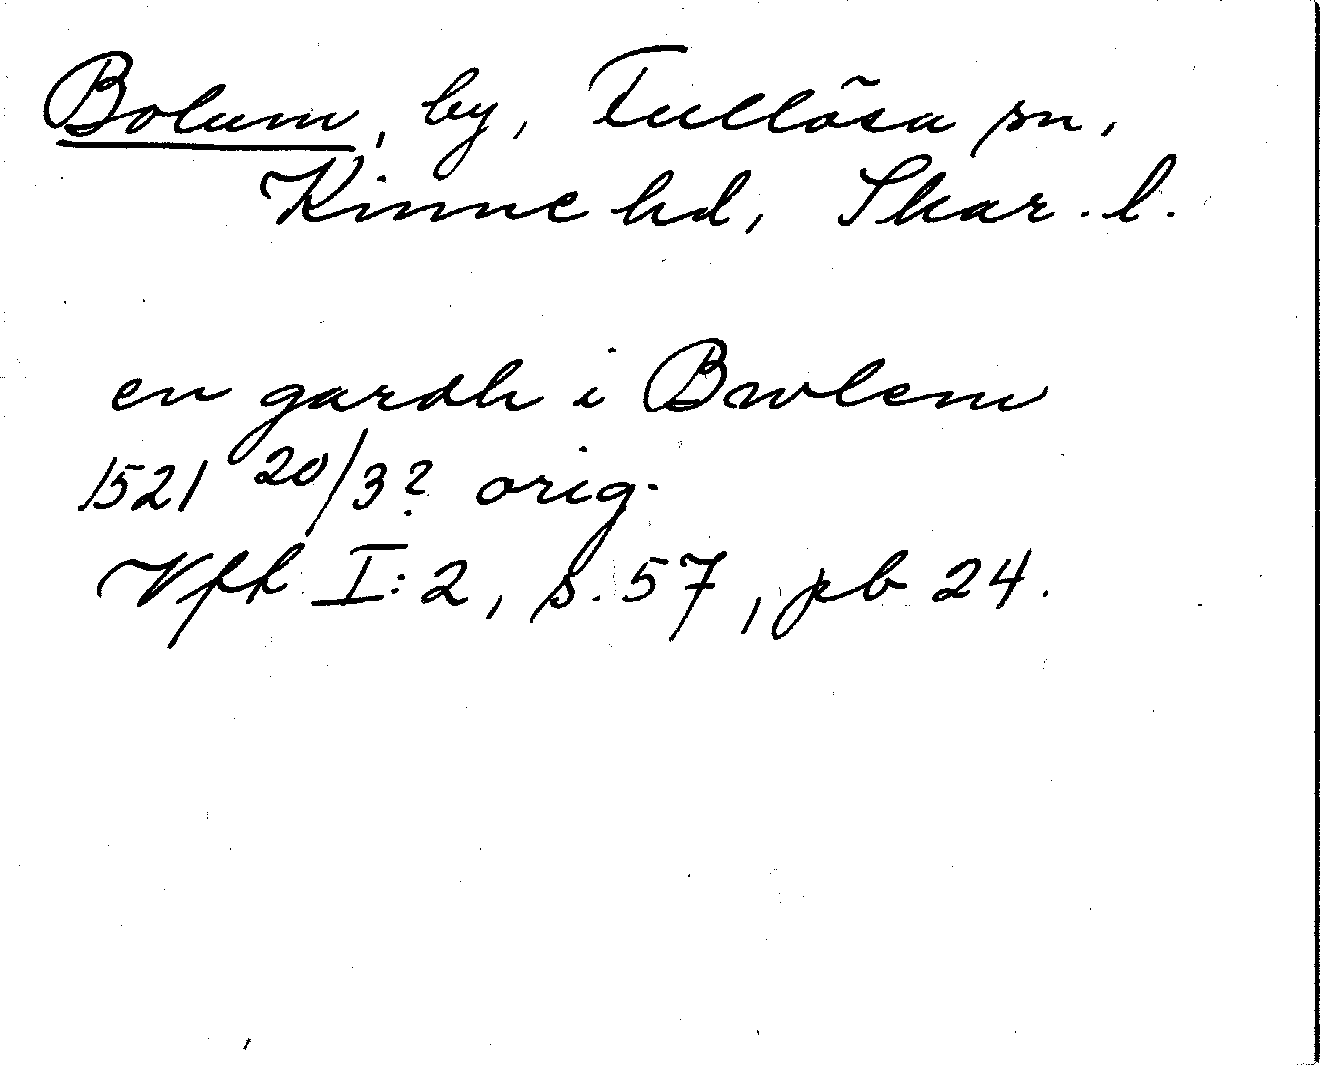 Bolum, by, Fullösa sn,
Kinne hd, Skar. l.
en gardh i Bwlem
1521 20/3? orig.
Vfh I:2, s. 57, pb 24.